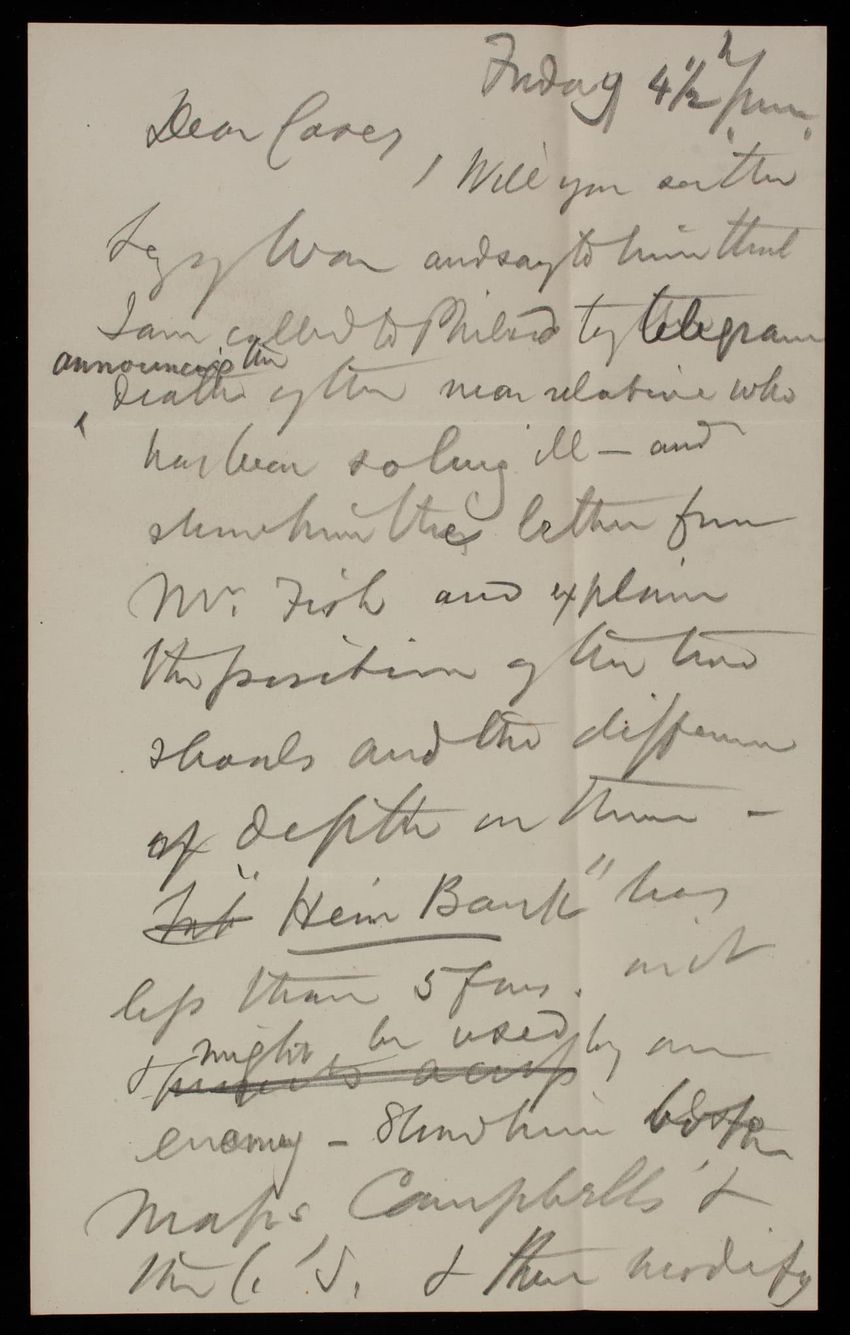 Friday 4 1/2 h p.m.
Dear Casey
Will you see the
Secy of War and say to him that
I am called to Philad by telegram
announcing the
death of the near relative who
has been so long ill — and
show him the letter from
Mr. Fish and explain
the position of the two
shoals and the difference
of depth on them —
"Hein Bank" has
less than 5 fms. on it
& might be used by an
enemy — Show him both
maps, Campbell's &
the C. S. & then modify